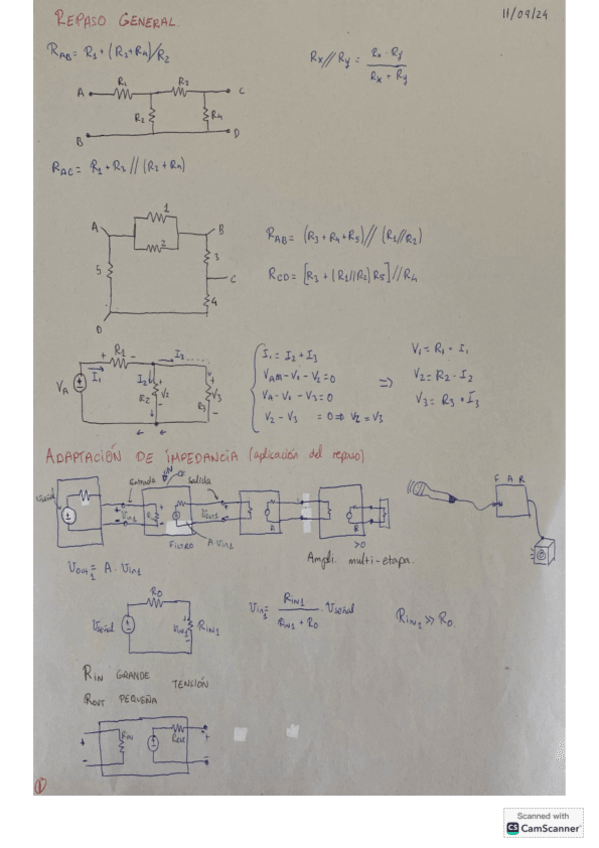 REPASO GENERAL.
11/09/24
R_AB = R1 + (R3+R4)//R2
Rx // Ry = Rx · Ry / Rx + Ry
A R1 R3 C
R2 R4
B D
R_AC = R1 + R3 // (R2 + R4)
1
A B
2
5 3
C
4
D
R_AB = (R3 + R4 + R5) // (R1//R2)
R_CD = [R3 + (R1//R2) R5] // R4
+ R1 - I3
I1 I2
V_A R2 V2 R3 V3
I1 = I2 + I3
V_A - V1 - V2 = 0
V_A - V1 - V3 = 0
V2 - V3 = 0 ⇒ V2 = V3
⇒
V1 = R1 · I1
V2 = R2 · I2
V3 = R3 · I3
ADAPTACIÓN DE IMPEDANCIA (aplicación del repaso)
Entrada Salida
Vseñal Vin1 Vout1
FILTRO A·Vin1
>0
Ampli. multi-etapa.
Vout1 = A · Vin1
RO
Vseñal Vin1 RIN1
Vin1 = RIN1 / RIN1 + RO · Vseñal
RIN1 >> RO.
RIN GRANDE
TENSIÓN
ROUT PEQUEÑA
RIN ROUT
1
Scanned with
CS CamScanner